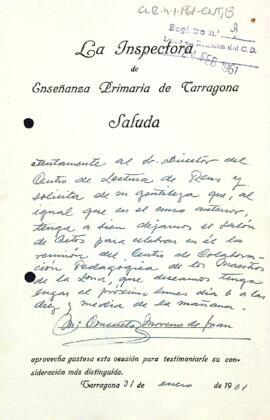 Registro n.º 9
La Inspectora
de
Enseñanza Primaria de Tarragona
Saluda
atentamente al Sr. Director del
Centro de Lectura de Reus y
solicita de su gentileza que, al
igual que en el curso anterior,
tenga a bien dejarnos el salón
de Actos para celebrar en él la
reunión del Centro de Colabora-
ción Pedagógica de los Maestros
de la Zona, que deseamos tenga
lugar el próximo lunes día 6 a las
diez y media de la mañana.
Mª Consuelo Moreno de Juan
aprovecha gustosa esta ocasión para testimoniarle su con-
sideración más distinguida.
Tarragona 31 de enero de 1961